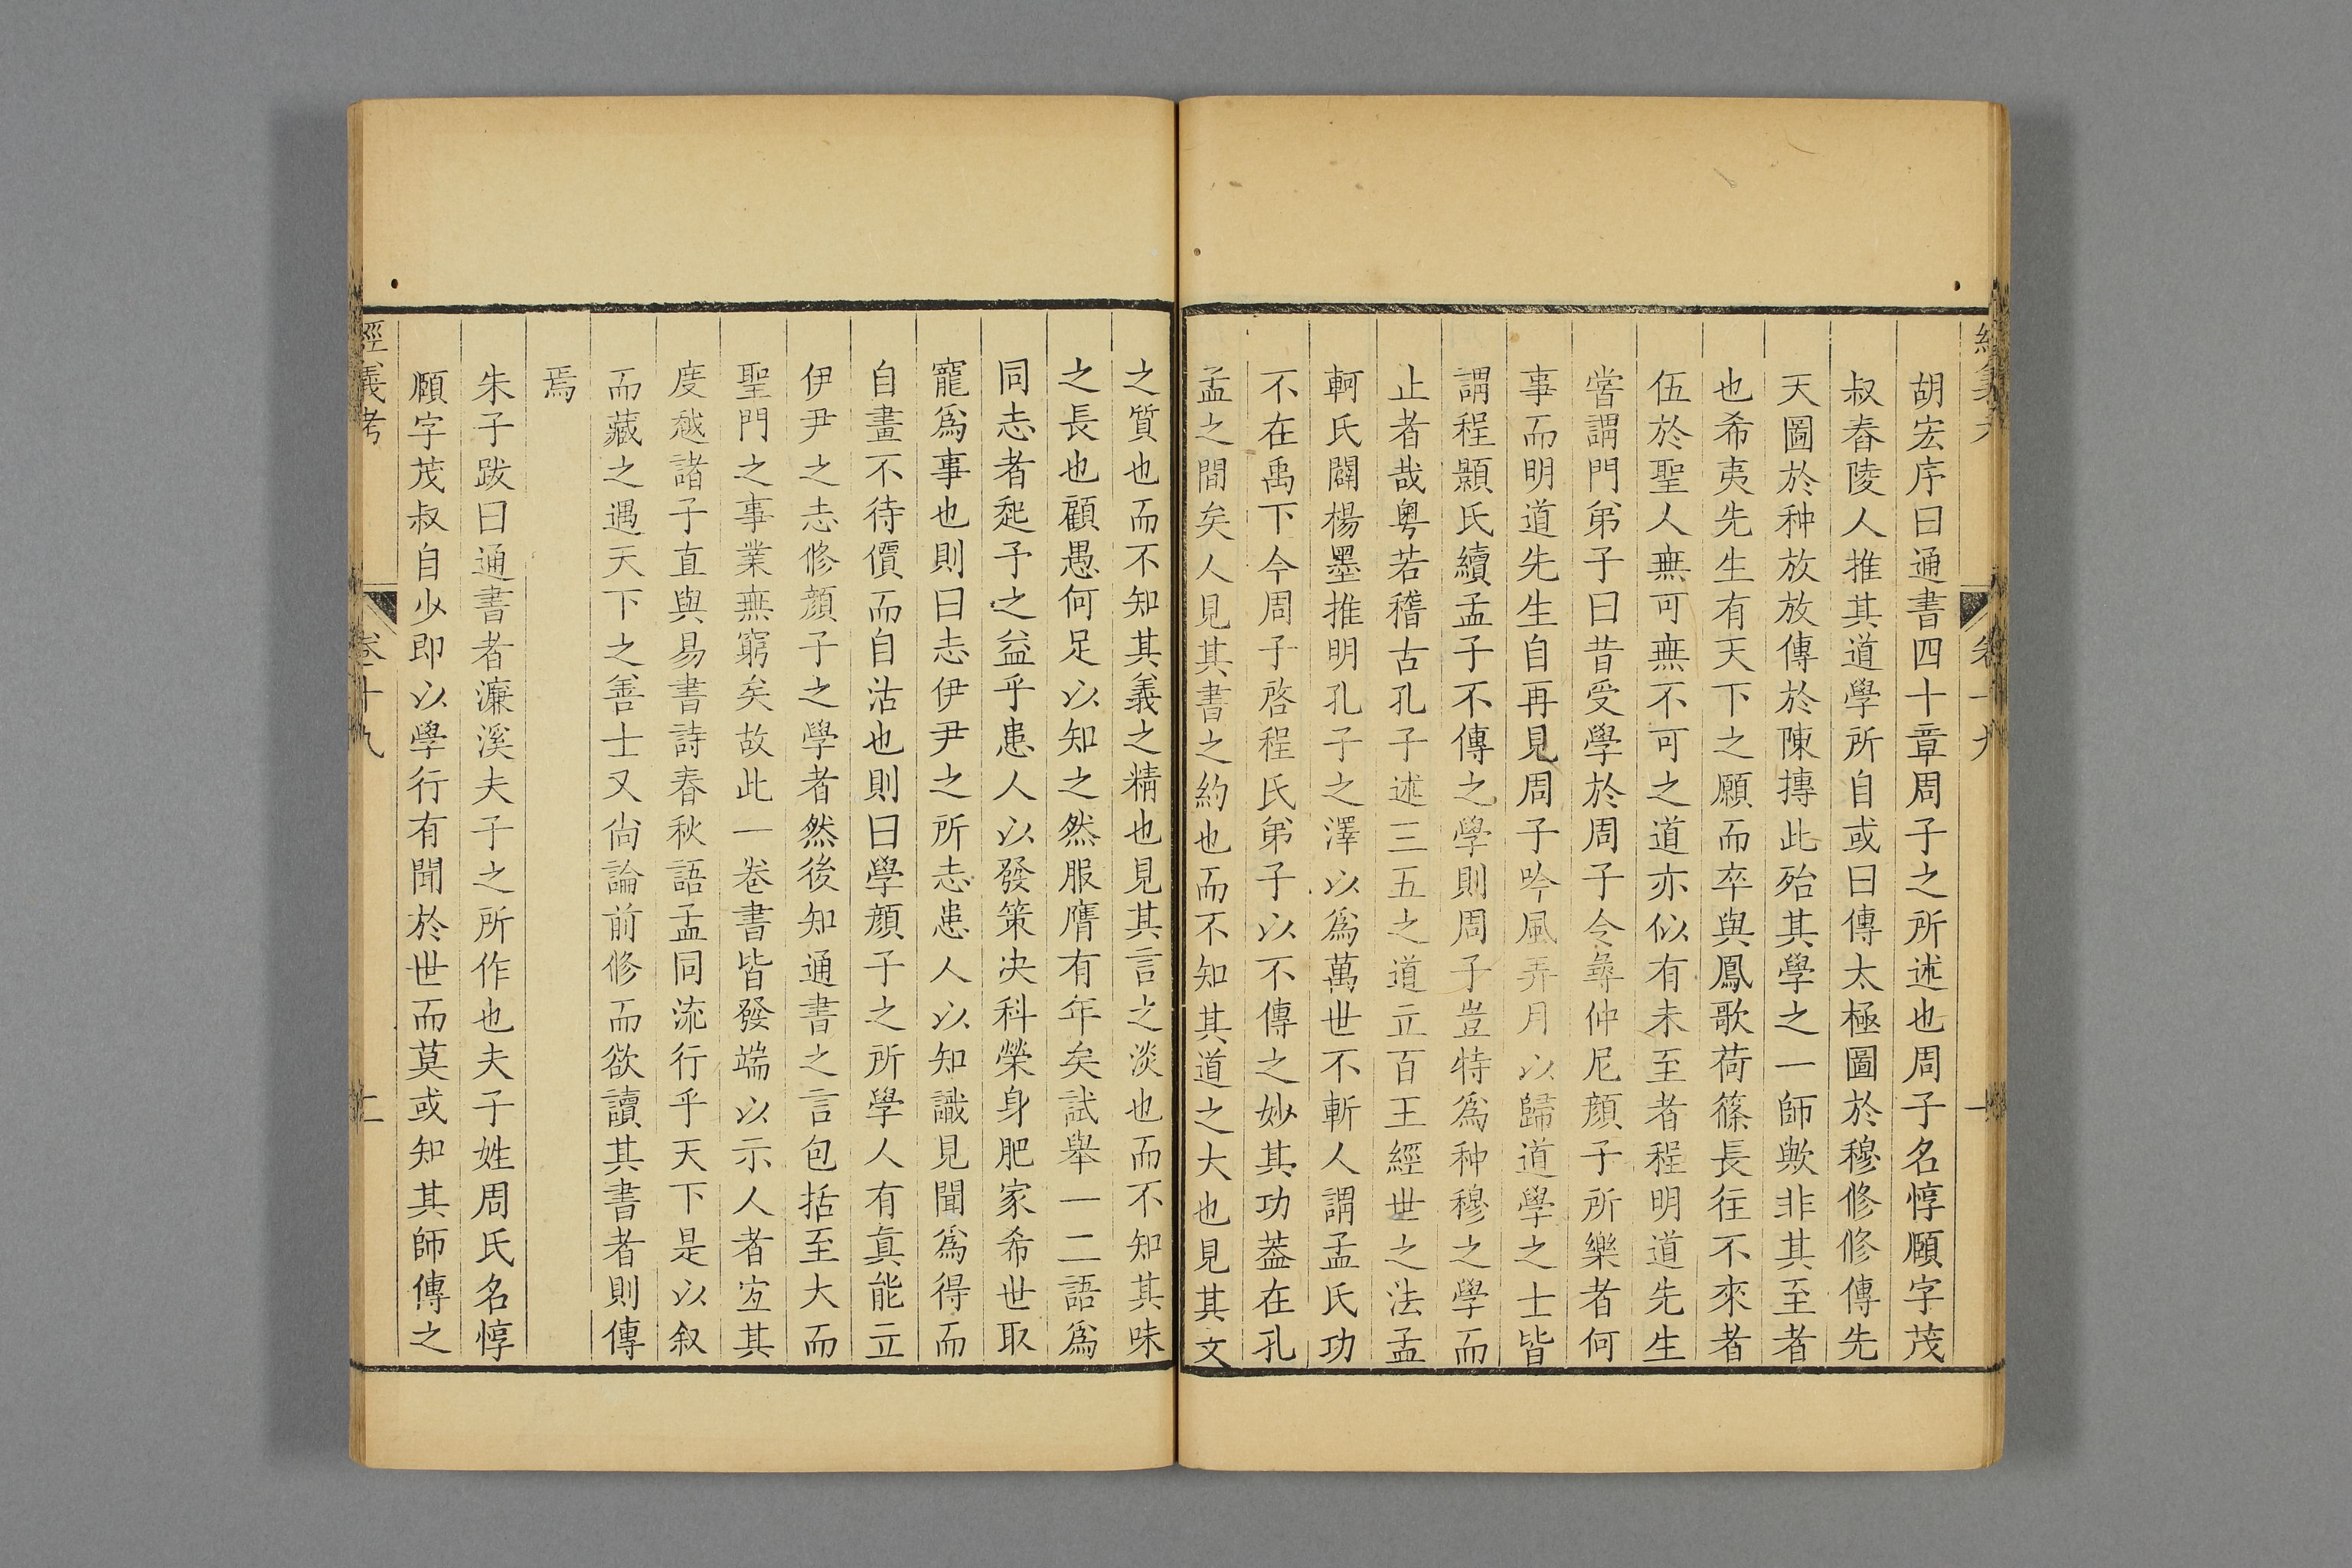 胡宏序曰通書四十章周子之所述也周子名惇頤字茂
叔舂陵人推其道學所自或曰傳太極圖於穆修修傳先
天圖於种放放傳於陳摶此殆其學之一師歟非其至者
也希夷先生有天下之願而卒與鳳歌荷篠長往不來者
伍於聖人無可無不可之道亦似有未至者程明道先生
嘗謂門弟子曰昔受學於周子令㝷仲尼顔子所樂者何
事而明道先生自再見周子吟風弄月以歸道學之士皆
謂程顥氏續孟子不傳之學則周子豈特爲种穆之學而
止者哉粵若稽古孔子述三五之道立百王經世之法孟
軻氏闢楊墨推明孔子之澤以爲萬世不斬人謂孟氏功
不在禹下今周子啓程氏弟子以不傳之妙其功蓋在孔
孟之間矣人見其書之約也而不知其道之大也見其文
之質也而不知其義之精也見其言之淡也而不知其味
之長也顧愚何足以知之然服膺有年矣試舉一二語爲
同志者起予之益乎患人以發策決科榮身肥家希世取
寵爲事也則曰志伊尹之所志患人以知識見聞爲得而
自畫不待價而自沽也則曰學顔子之所學人有眞能立
伊尹之志修顔子之學者然後知通書之言包括至大而
聖門之事業無窮矣故此一卷書皆發端以示人者宐其
度越諸子直與易書詩春秋語孟同流行乎天下是以叙
而藏之遇天下之善士又尙論前修而欲讀其書者則傳
焉
朱子跋曰通書者濂溪夫子之所作也夫子姓周氏名惇
頤字茂叔自少即以學行有聞於世而莫或知其師傳之
經義考 卷十九